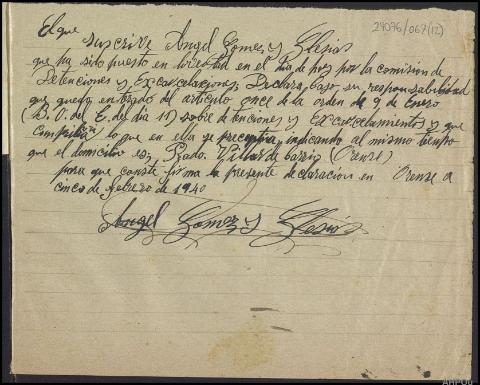 29096/067(12)
El que
suscrive Angel Gomez y Iglesias
que ha sido puesto en livertad en el dia de hoy por la comision de
Detenciones y Excarcelaciones, Declara, bajo su responsabilidad
que queda enterado del articulo once de la orden de 9 de Enero
(B. O. del E. del dia 11) sobre detenciones y Excarcelamientos y que
cumplira lo que en ella se preceptua, indicando al mismo tiempo
que el domicilio es, Prado. Vilar de barrio (Orense)
para que conste firma la presente declaracion en Orense a
cinco de febrero de 1940
Angel Gomez y Iglesias
AHPOu